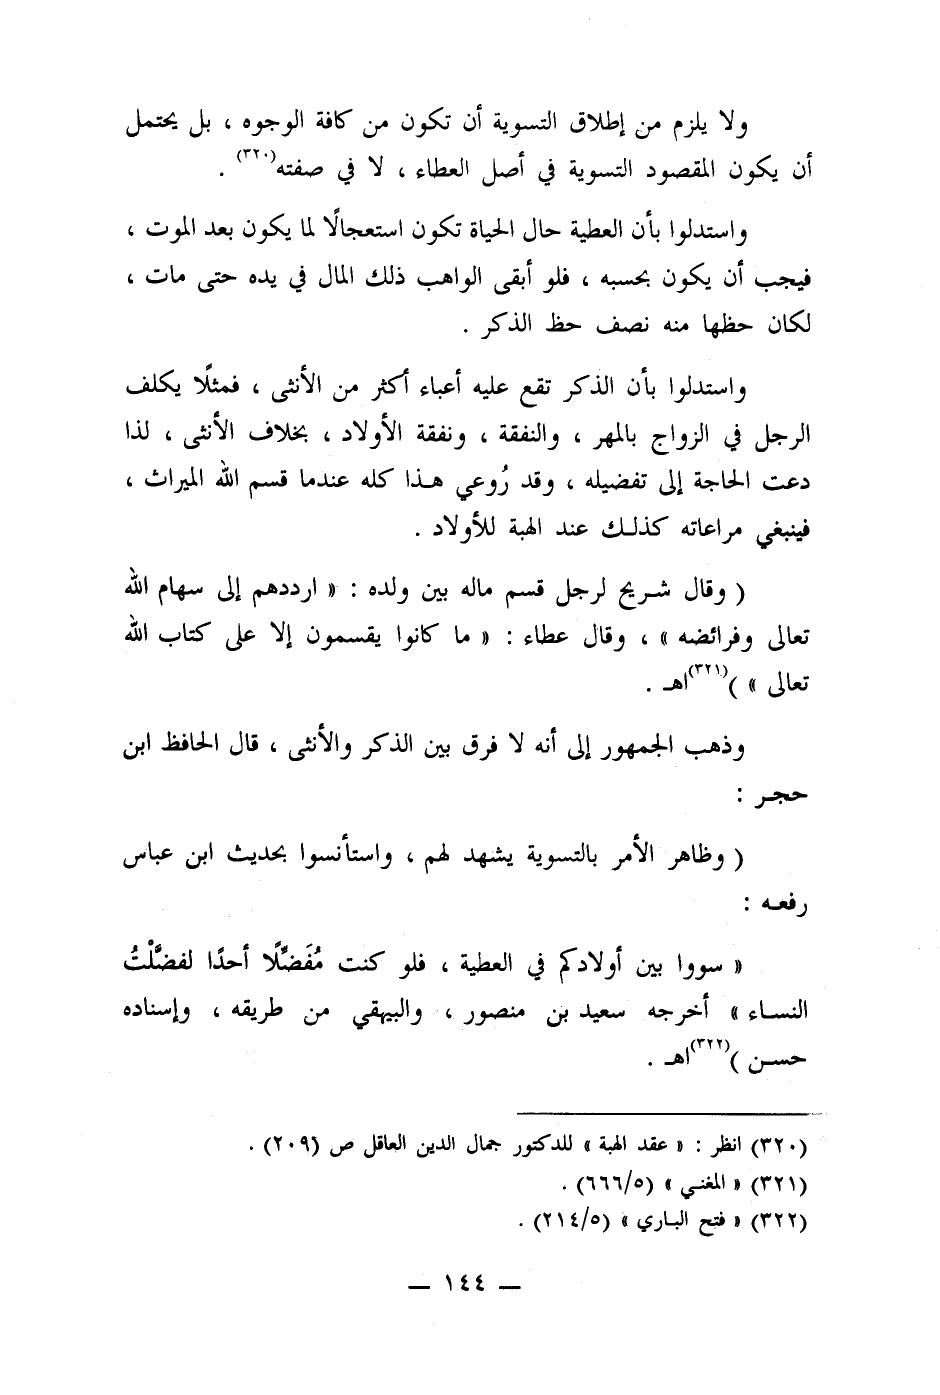 ولا يلزم من إطلاق التسوية أن تكون من كافة الوجوه ، بل يحتمل
أن يكون المقصود التسوية في أصل العطاء ، لا في صفته(٣٢٠) .
واستدلوا بأن العطية حال الحياة تكون استعجالًا لما يكون بعد الموت ،
فيجب أن يكون بحسبه ، فلو أبقى الواهب ذلك المال في يده حتى مات ،
لكان حظها منه نصف حظ الذكر .
واستدلوا بأن الذكر تقع عليه أعباء أكثر من الأنثى ، فمثلًا يكلف
الرجل في الزواج بالمهر ، والنفقة ، ونفقة الأولاد ، بخلاف الأنثى ، لذا
دعت الحاجة إلى تفضيله ، وقد رُوعي هـذا كله عندما قسم الله الميراث ،
فينبغي مراعاته كذلـك عند الهبة للأولاد .
( وقال شـريح لرجل قسم ماله بين ولده : « ارددهم إلى سهام الله
تعالى وفرائضه » ، وقال عطاء : « ما كانوا يقسمون إلا على كتاب الله
تعالى » )(٣٢١)اهـ .
وذهب الجمهور إلى أنه لا فرق بين الذكر والأنثى ، قال الحافظ ابن
حجـر :
( وظاهر الأمر بالتسوية يشهد لهم ، واستأنسوا بحديث ابن عباس
رفعـه :
« سووا بين أولادكم في العطية ، فلو كنت مُفَضِّلًا أحدًا لفضَّلْتُ
النسـاء » أخرجه سعيد بن منصور ، والبيهقي من طريقه ، وإسناده
حسـن )(٣٢٢)اهـ .
(٣٢٠) انظر : « عقد الهبة » للدكتور جمال الدين العاقل ص (٢٠٩) .
(٣٢١) « المغنـي » (٦٦٦/٥) .
(٣٢٢) « فتح البـاري » (٢١٤/٥) .
— ١٤٤ —